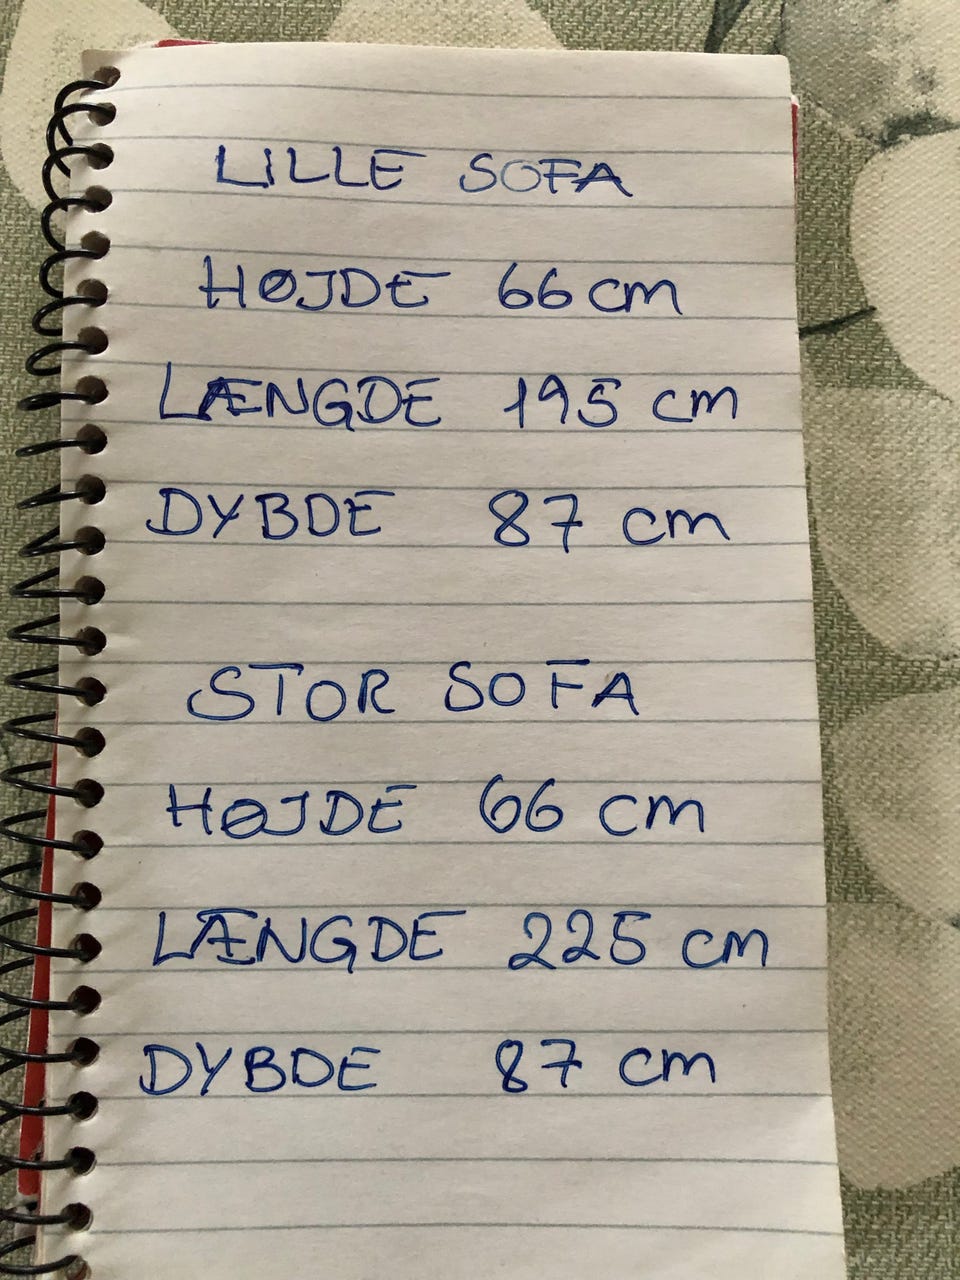 LILLE SOFA
HØJDE 66 cm
LÆNGDE 195 cm
DYBDE 87 cm
STOR SOFA
HØJDE 66 cm
LÆNGDE 225 cm
DYBDE 87 cm